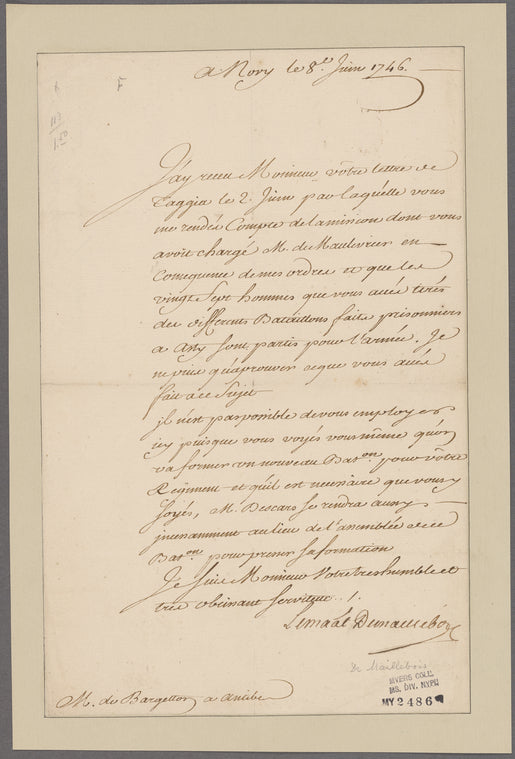 a Novy le 8.e Juin 1746.
F
113
1.50
J'ay receu Monsieur vôtre lettre de
Taggia le 2. Juin par laquelle vous
me rendés Compte de la mission dont vous
avoit chargé M. de Maulevrier en
Consequence de mes ordres et que les
vingt Sept hommes que vous avés tirés
des differents Bataillons faits prisonniers
a Asty sont partis pour l'armée. Je
ne puis qu'aprouver ce que vous avés
fait a ce Sujet
jl n'est pas possible de vous employer
icy puisque vous voyés vous même qu'on
va former un nouveau Bat.on pour vôtre
Regiment et qu'il est necessaire que vous y
soyés, M. Descars se rendra aussy
incessamment au lieu de l'assemblée de ce
Bat.on pour presser sa formation
Je suis Monsieur Votre tres humble et
tres obeissant serviteur ./.
Le mãal Demaillebois
De Maillebois
MYERS COLL.
MS. DIV. NYPL
MY 2486
M. de Bargetton a Antibe